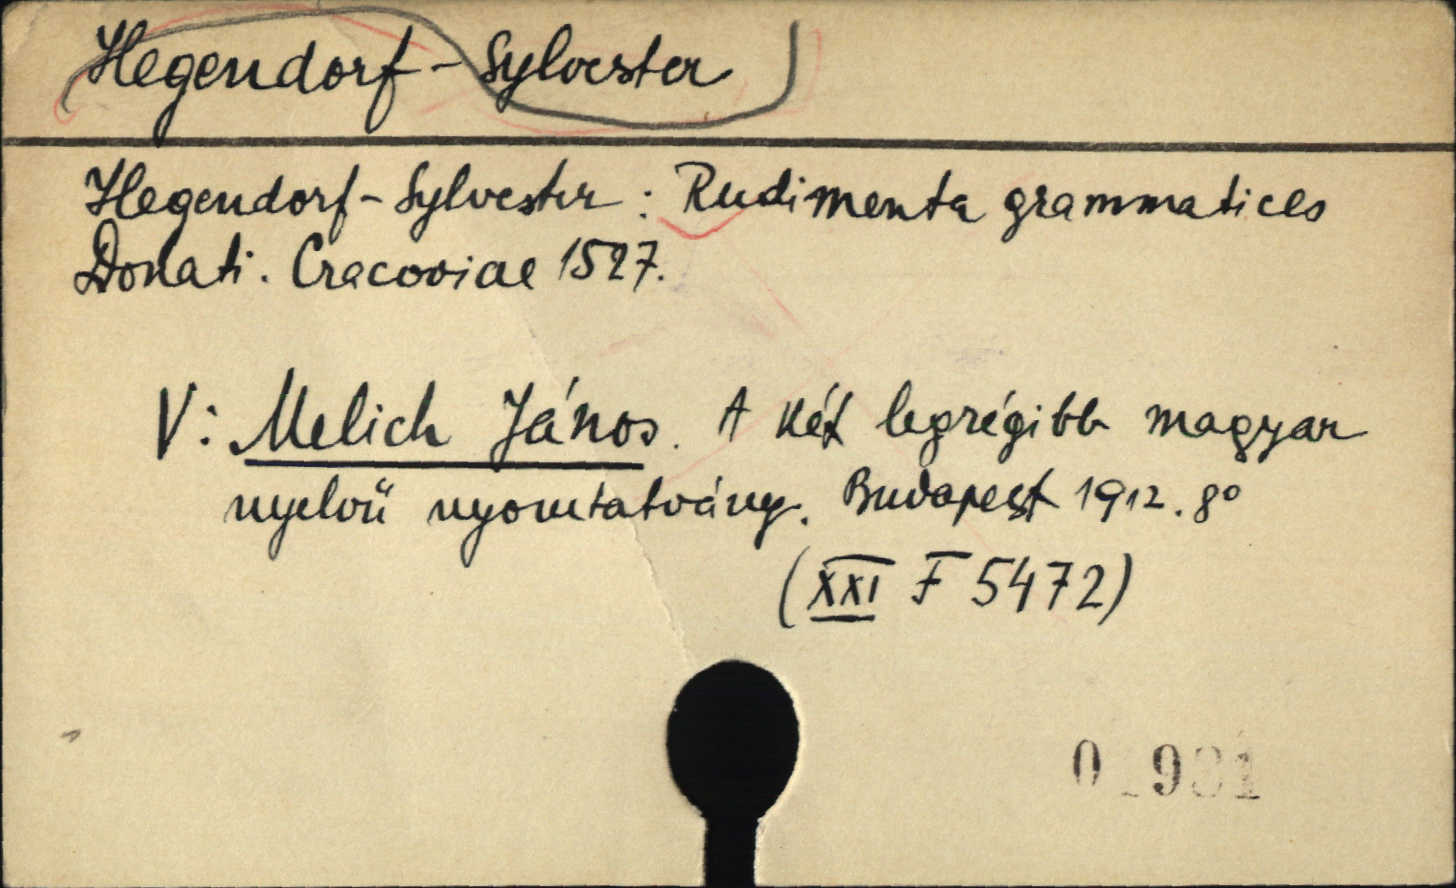 Hegendorf - Sylvester
Hegendorf - Sylvester : Rudimenta grammatices
Donati. Cracoviae 1527.
V: Melich János. A két legrégibb magyar
nyelvű nyomtatvány. Budapest 1912. 8°
(XXI F 5472)